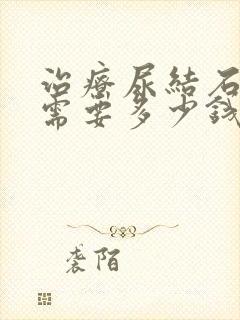 治療尿結石
需要多少錢
袭陌